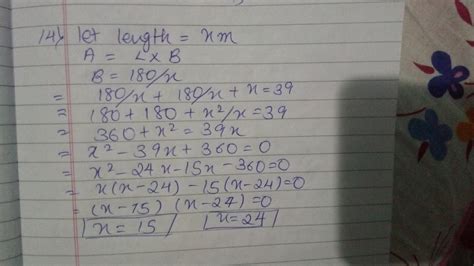 14) let length = x m
A = L x B
B = 180/x
= 180/x + 180/x + x = 39
= 180 + 180 + x²/x = 39
= 360 + x² = 39x
= x² - 39x + 360 = 0
= x² - 24x - 15x - 360 = 0
= x(x-24) - 15(x-24) = 0
= (x-15) (x-24) = 0
x = 15 x = 24